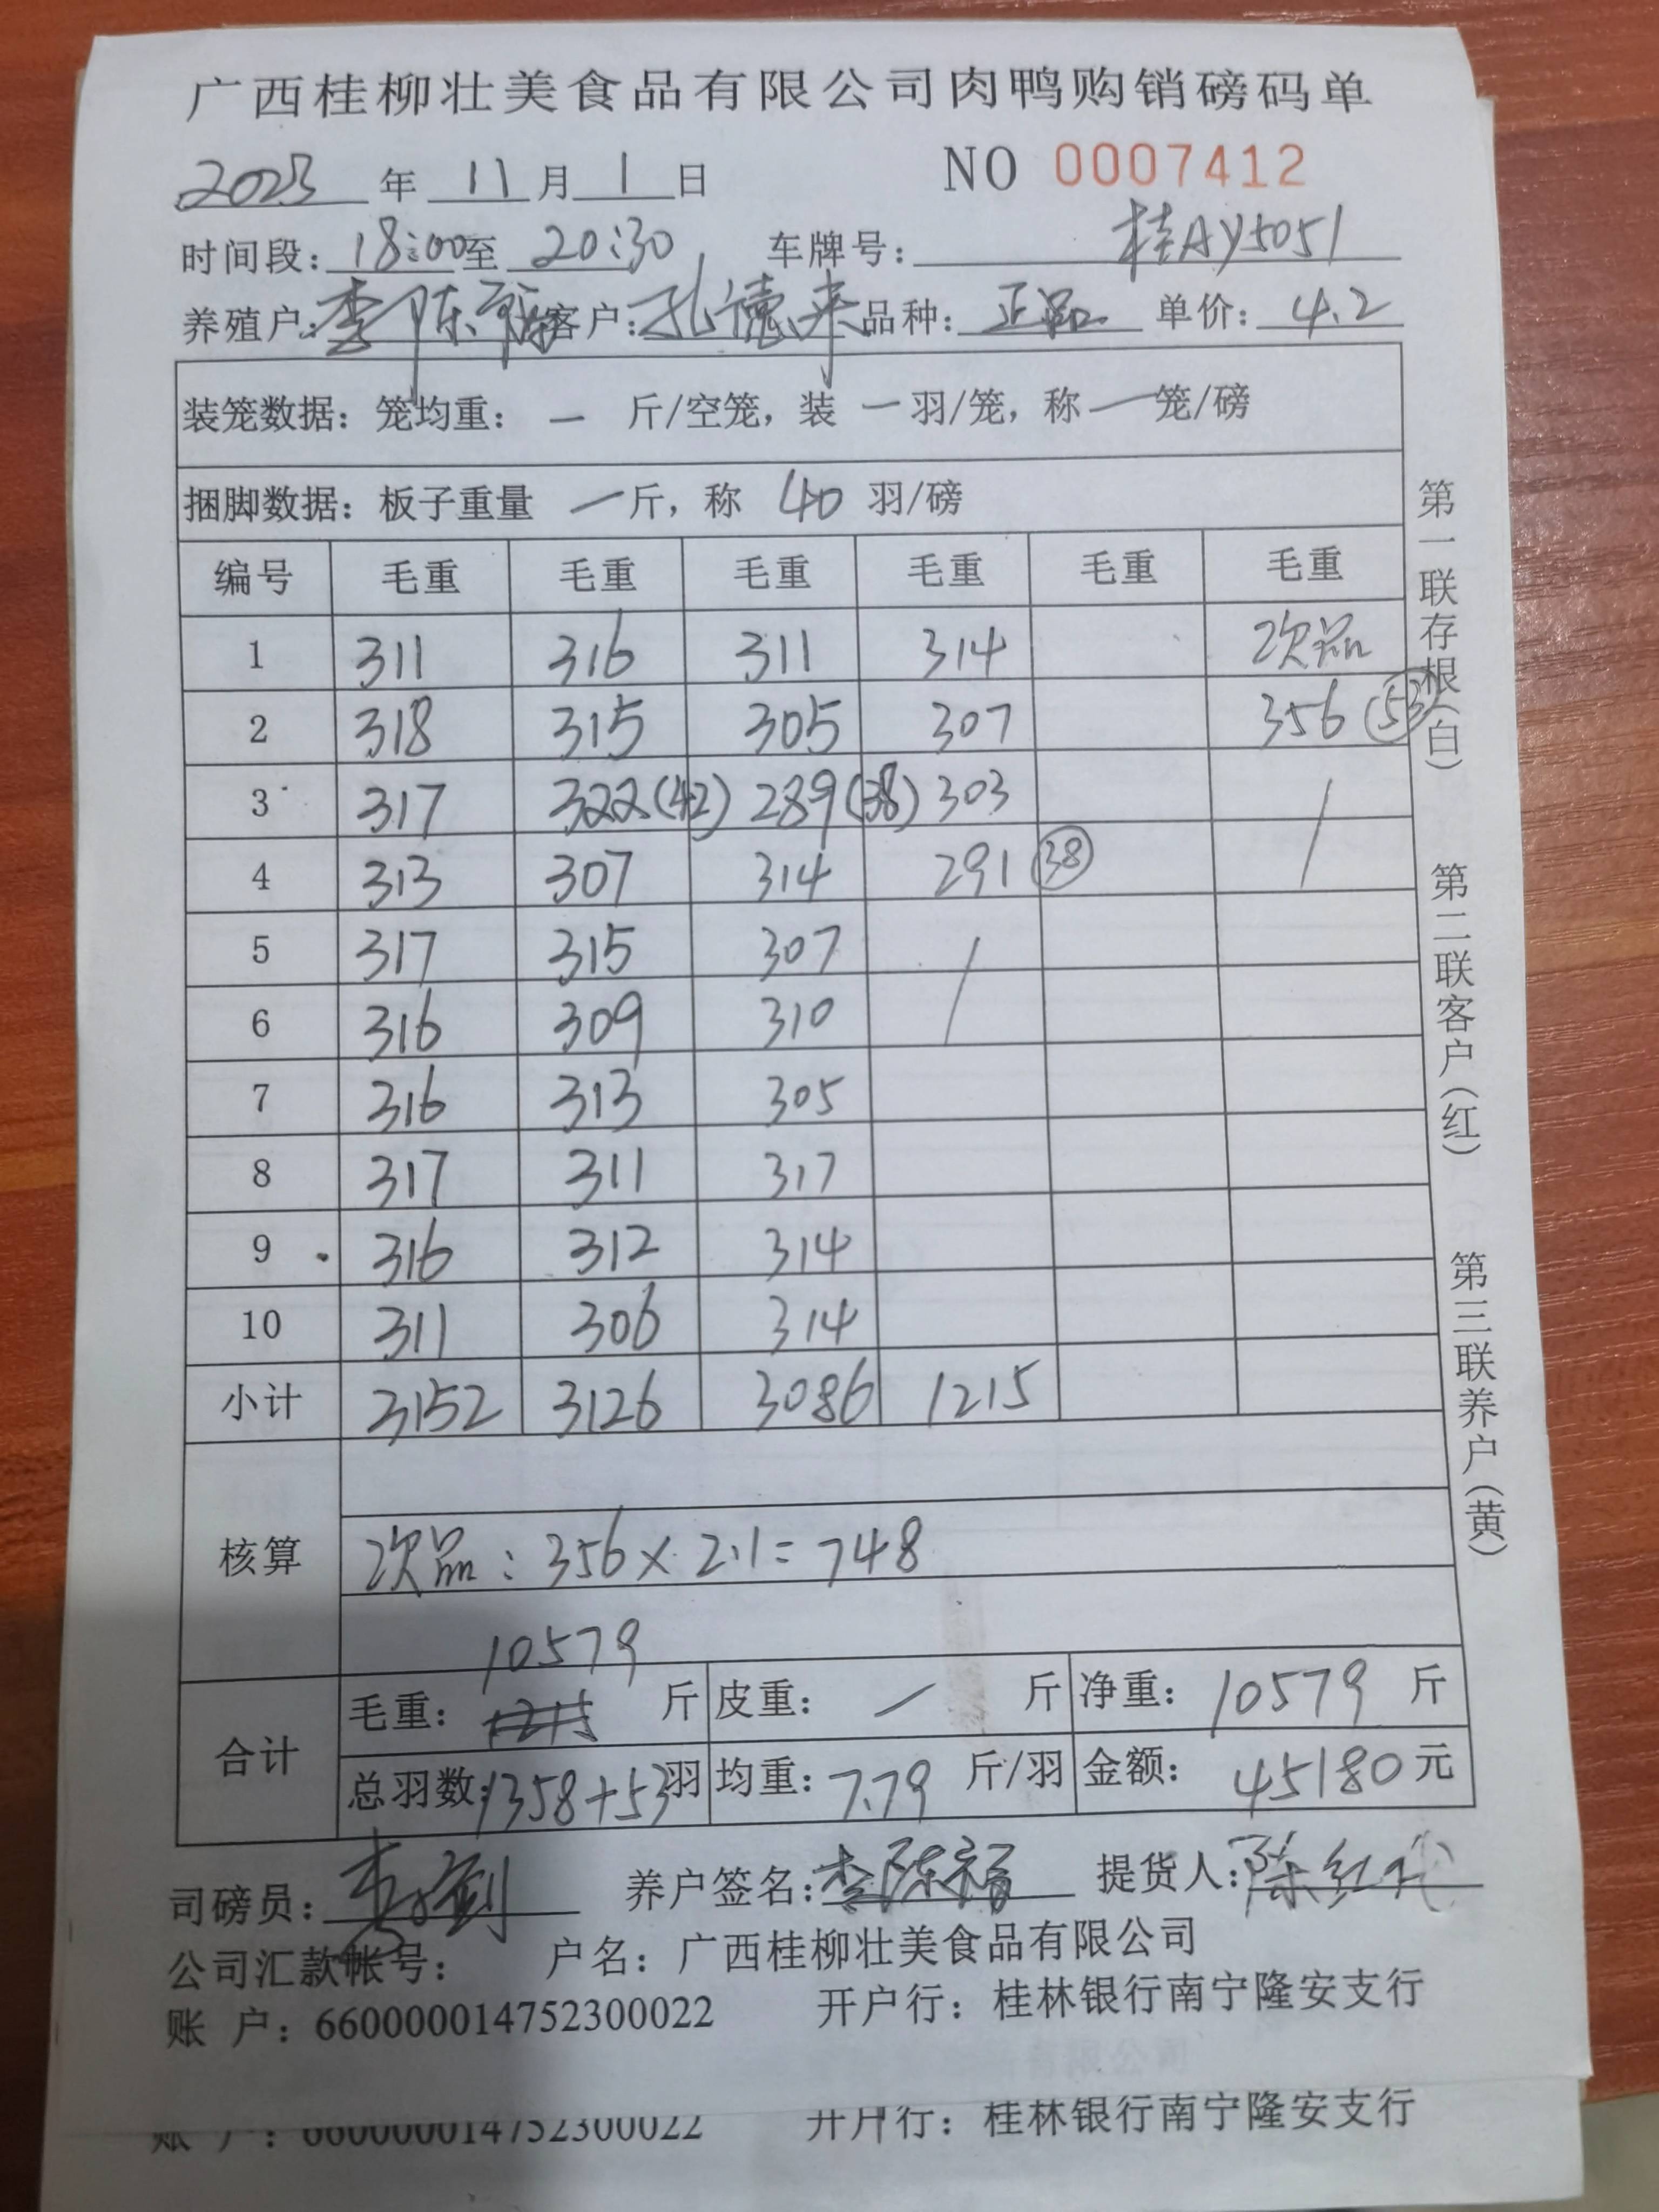 广西桂柳壮美食品有限公司肉鸭购销磅码单
2023 年 11 月 1 日 NO 0007412
时间段：18:00至 20:30 车牌号：桂AY5051
养殖户：李陈福 客户：孔德来 品种：正品 单价：4.2
装笼数据：笼均重：一 斤/空笼，装 一 羽/笼，称 一 笼/磅
捆脚数据：板子重量 一 斤，称 40 羽/磅
编号 毛重 毛重 毛重 毛重 毛重 毛重
1 311 316 311 314 次品
2 318 315 305 307 356 (53)
3 317 322(42) 289(38) 303 /
4 313 307 314 291 (38)
5 317 315 307 /
6 316 309 310
7 316 313 305
8 317 311 317
9 316 312 314
10 311 306 314
小计 3152 3126 3086 1215
核算
次品：356×2.1=748
10579
合计 毛重： 1215 斤 皮重： / 斤 净重：10579 斤
总羽数：1358+53羽 均重：7.79 斤/羽 金额：45180元
司磅员： 养户签名：李陈福 提货人：陈红
公司汇款帐号： 户名：广西桂柳壮美食品有限公司
账 户：660000014752300022 开户行：桂林银行南宁隆安支行
账 户：660000014752300022 开户行：桂林银行南宁隆安支行
第一联存根（白） 第二联客户（红） 第三联养户（黄）